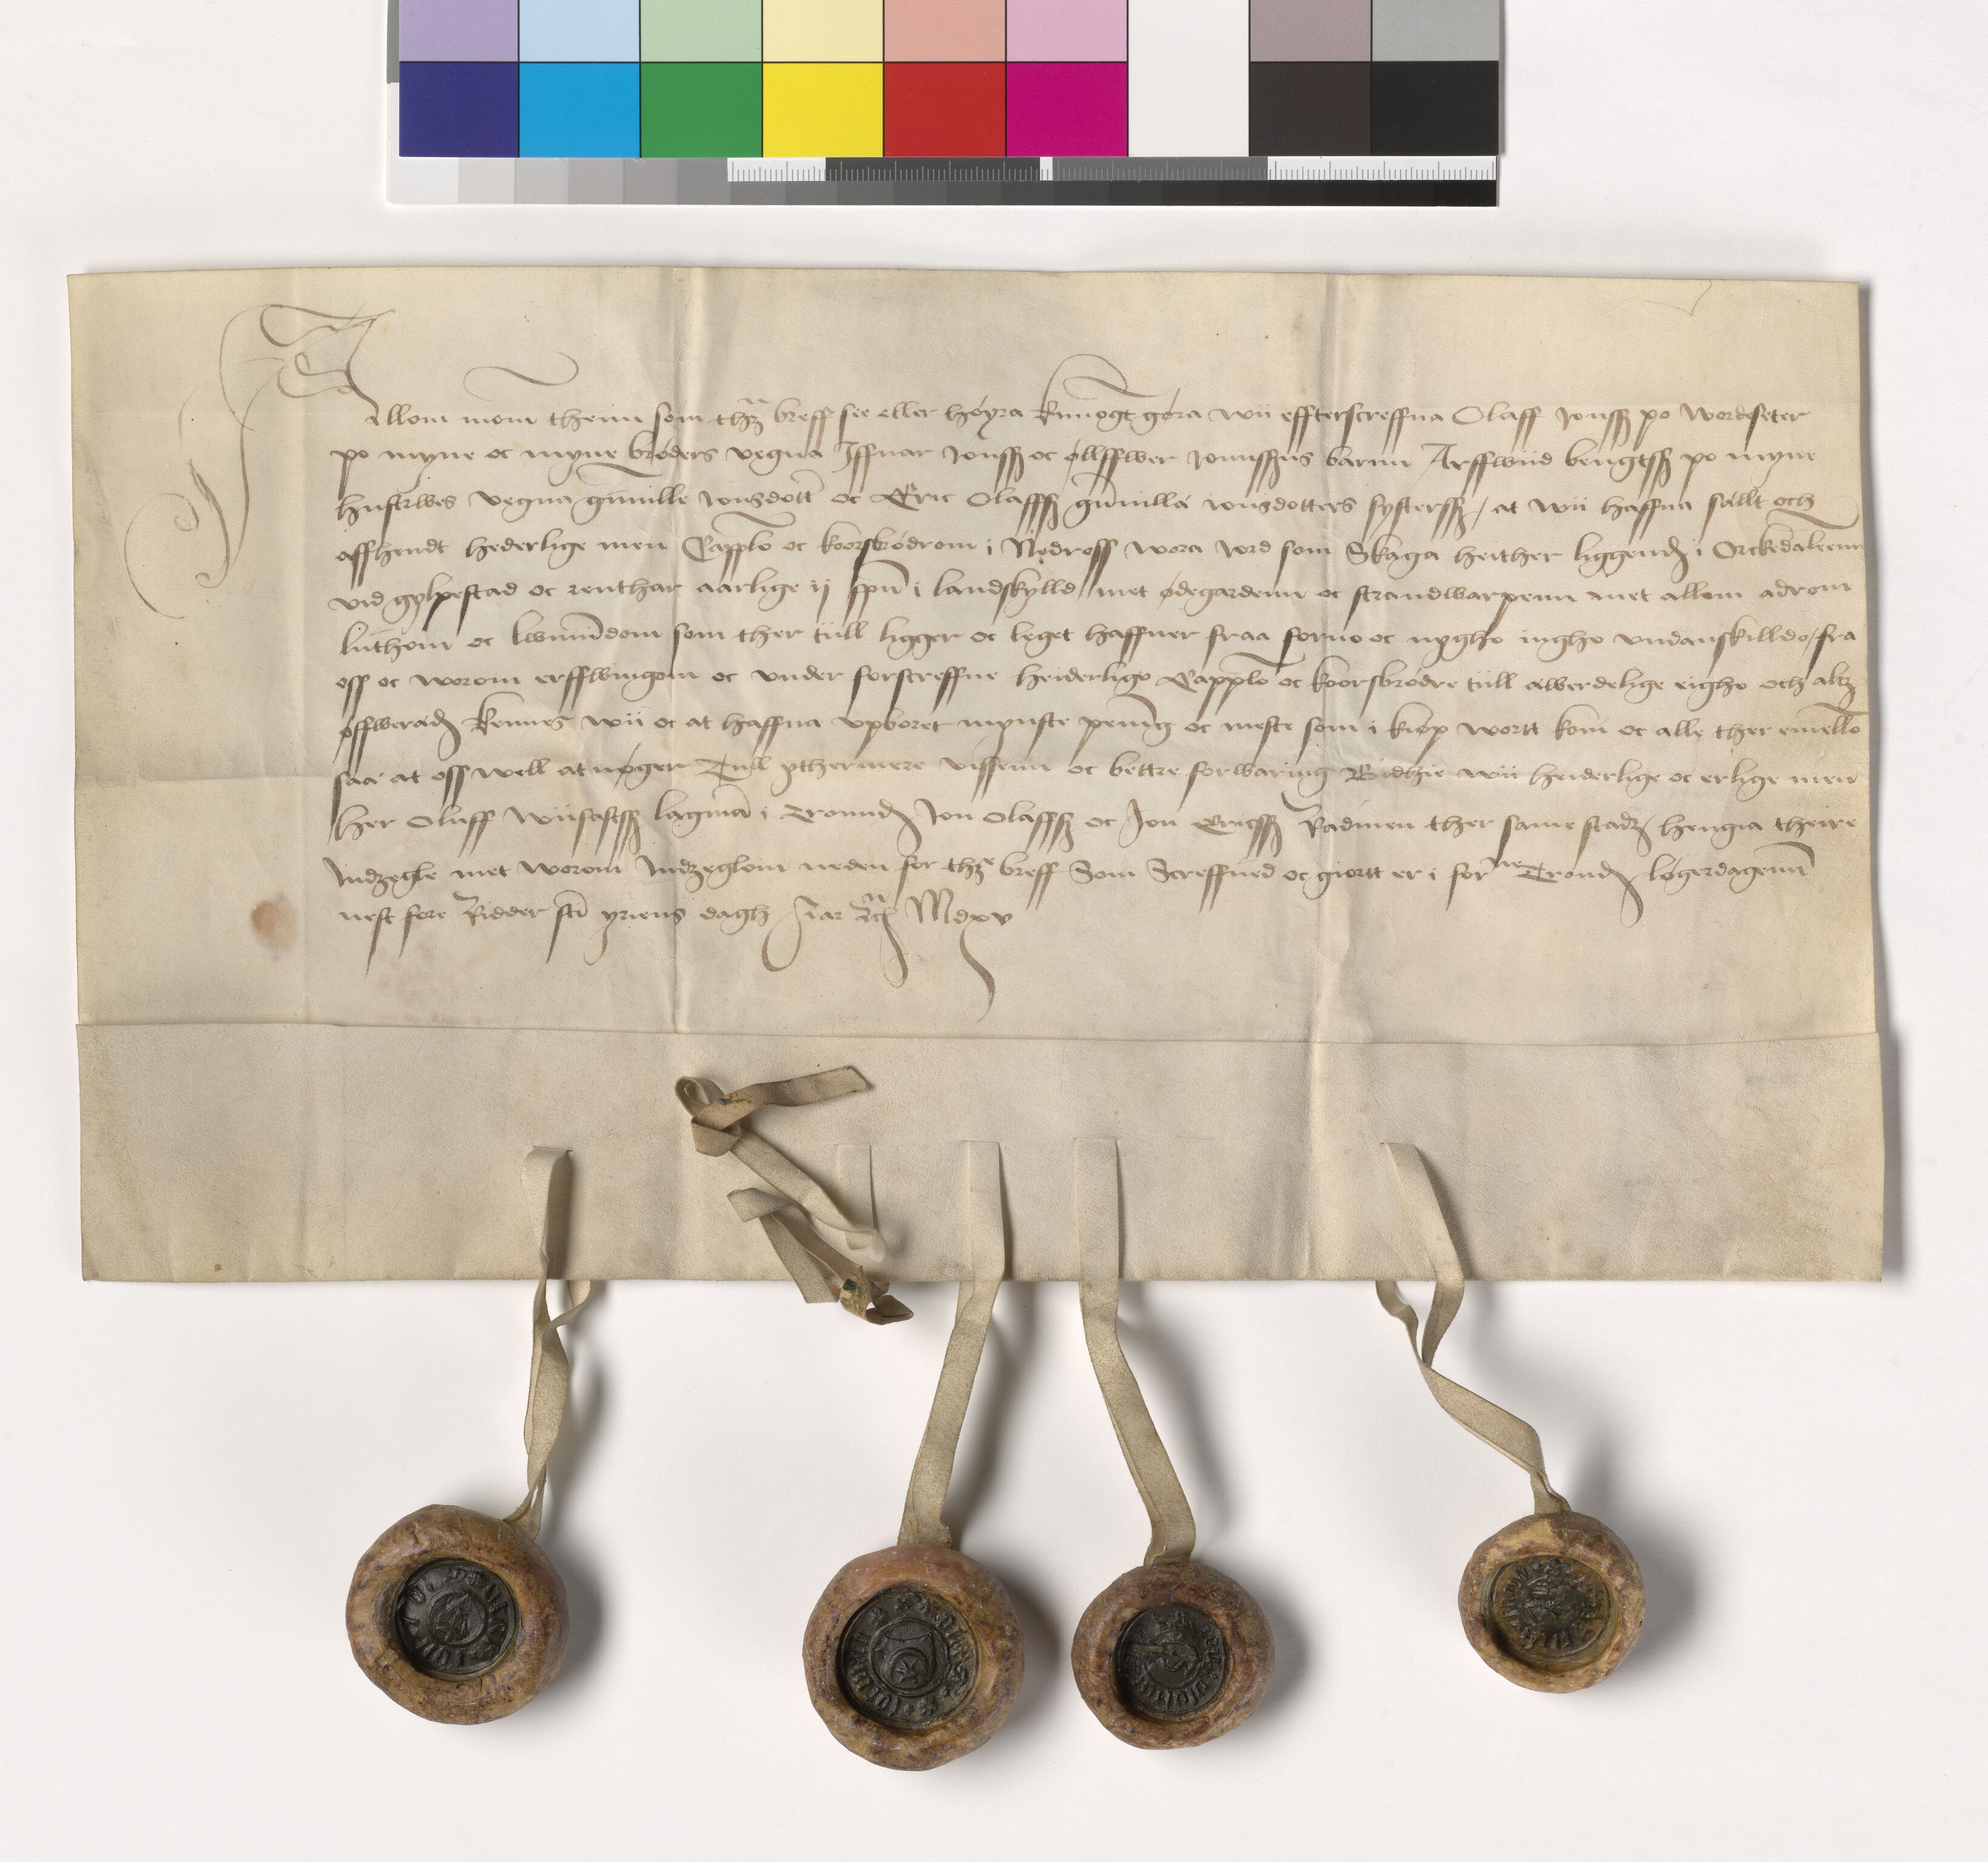 Allom mom̄ thenn som thz̄ breff see eller høyra kunnogt gøra wii effterscreffna Olaff Jonssz po Wordeseter
po myne oc myne brøders vegna Iffuar Jonssz oc øllffwer Jonnsszus barnn Arffwiid bengtssz po myne
hustrwes vegna gūnille Jonsdotṫ oc Eric Olaffssz gūnilla Jonsdotters systerssz / at wii haffua sällt och
affhendt hederlige men Capplo oc koorsbrødrom i Nidross wora Jord som Skaga heither liggendz i Orckedaleenn
vid gylpestad oc renthar aarlige ij spn̄ i landskylld met ødegardenn oc strandwarpenn met allom adrom
luthom oc lwnnīdom som ther tiill ligger oc leget haffuer fraa forno oc nygho ingho vndanskilldo / fra
oss oc worom erffwingom oc vnder forscreffne heiderligo Capplo oc koorsbrødre tiill awerdelige eigho och altz
øffweradz kennes wii oc at haffua vpboret mynste penīg oc meste som i kiøp wortt kom oc alle ther emello
saa at oss well at nøger Tiill ythermere vissenn oc bettre forwaring Bidhie wii heiderlige oc erlige men
her Oluff Wiifastssz lagmā i Tronndz Jon Olaffssz oc Jon Ericssz Radmen ther same stadz hengia theire
Indzegle met worom Indzeglom neden for thz breff Som Screffued oc giørtt er i forne Trondz løgerdagenn
nest fore Ridder sti yriens dagh Aar etc Mdxv